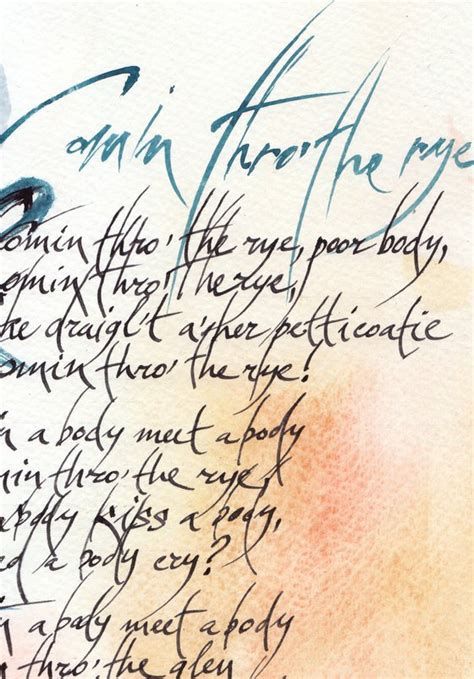 Comin thro' the rye
Comin thro' the rye, poor body,
omin thro' the rye,
he draigl't a' her petticoatie
omin thro' the rye!
a body meet a body
in thro' the rye,
a body kiss a body,
a body cry?
a body meet a body
thro' the glen